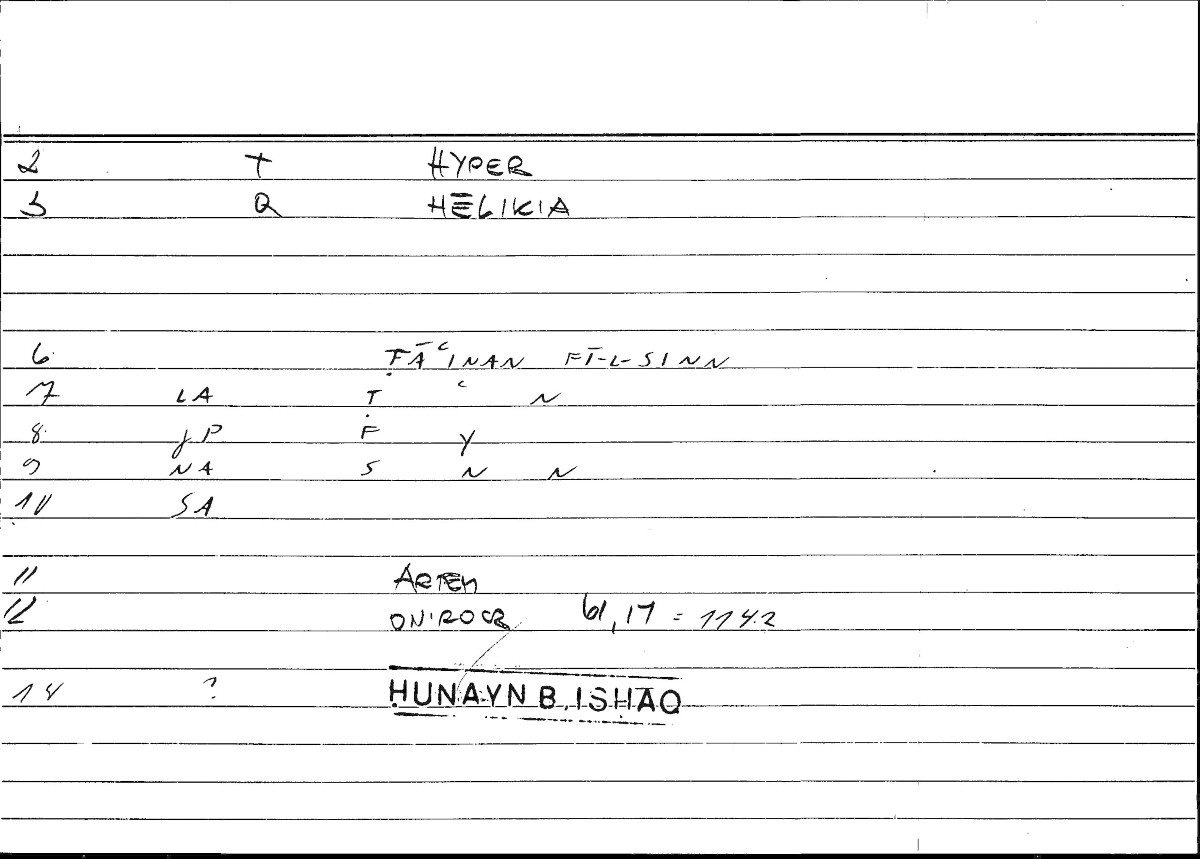 2 T HYPER
3 Q HĒLIKIA
6 ṬĀʿINAN FĪ-L-SINN
7 LA Ṭ ʿ N
8 JP F Y
9 NA S N N
10 SA
11 ARTEM
12 ONIROCR 61,17 = 114.2
14 ? ḤUNAYN B. ISḤĀQ